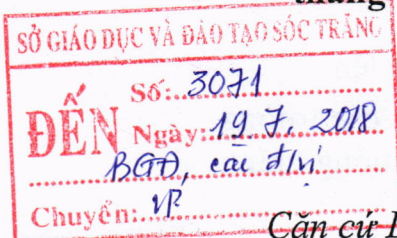 tháng
SỞ GIÁO DỤC VÀ ĐÀO TẠO SÓC TRĂNG
ĐẾN
Số: 3071
Ngày: 19.7.2018
BGĐ, các đ/vị
Chuyển: VP
Căn cứ